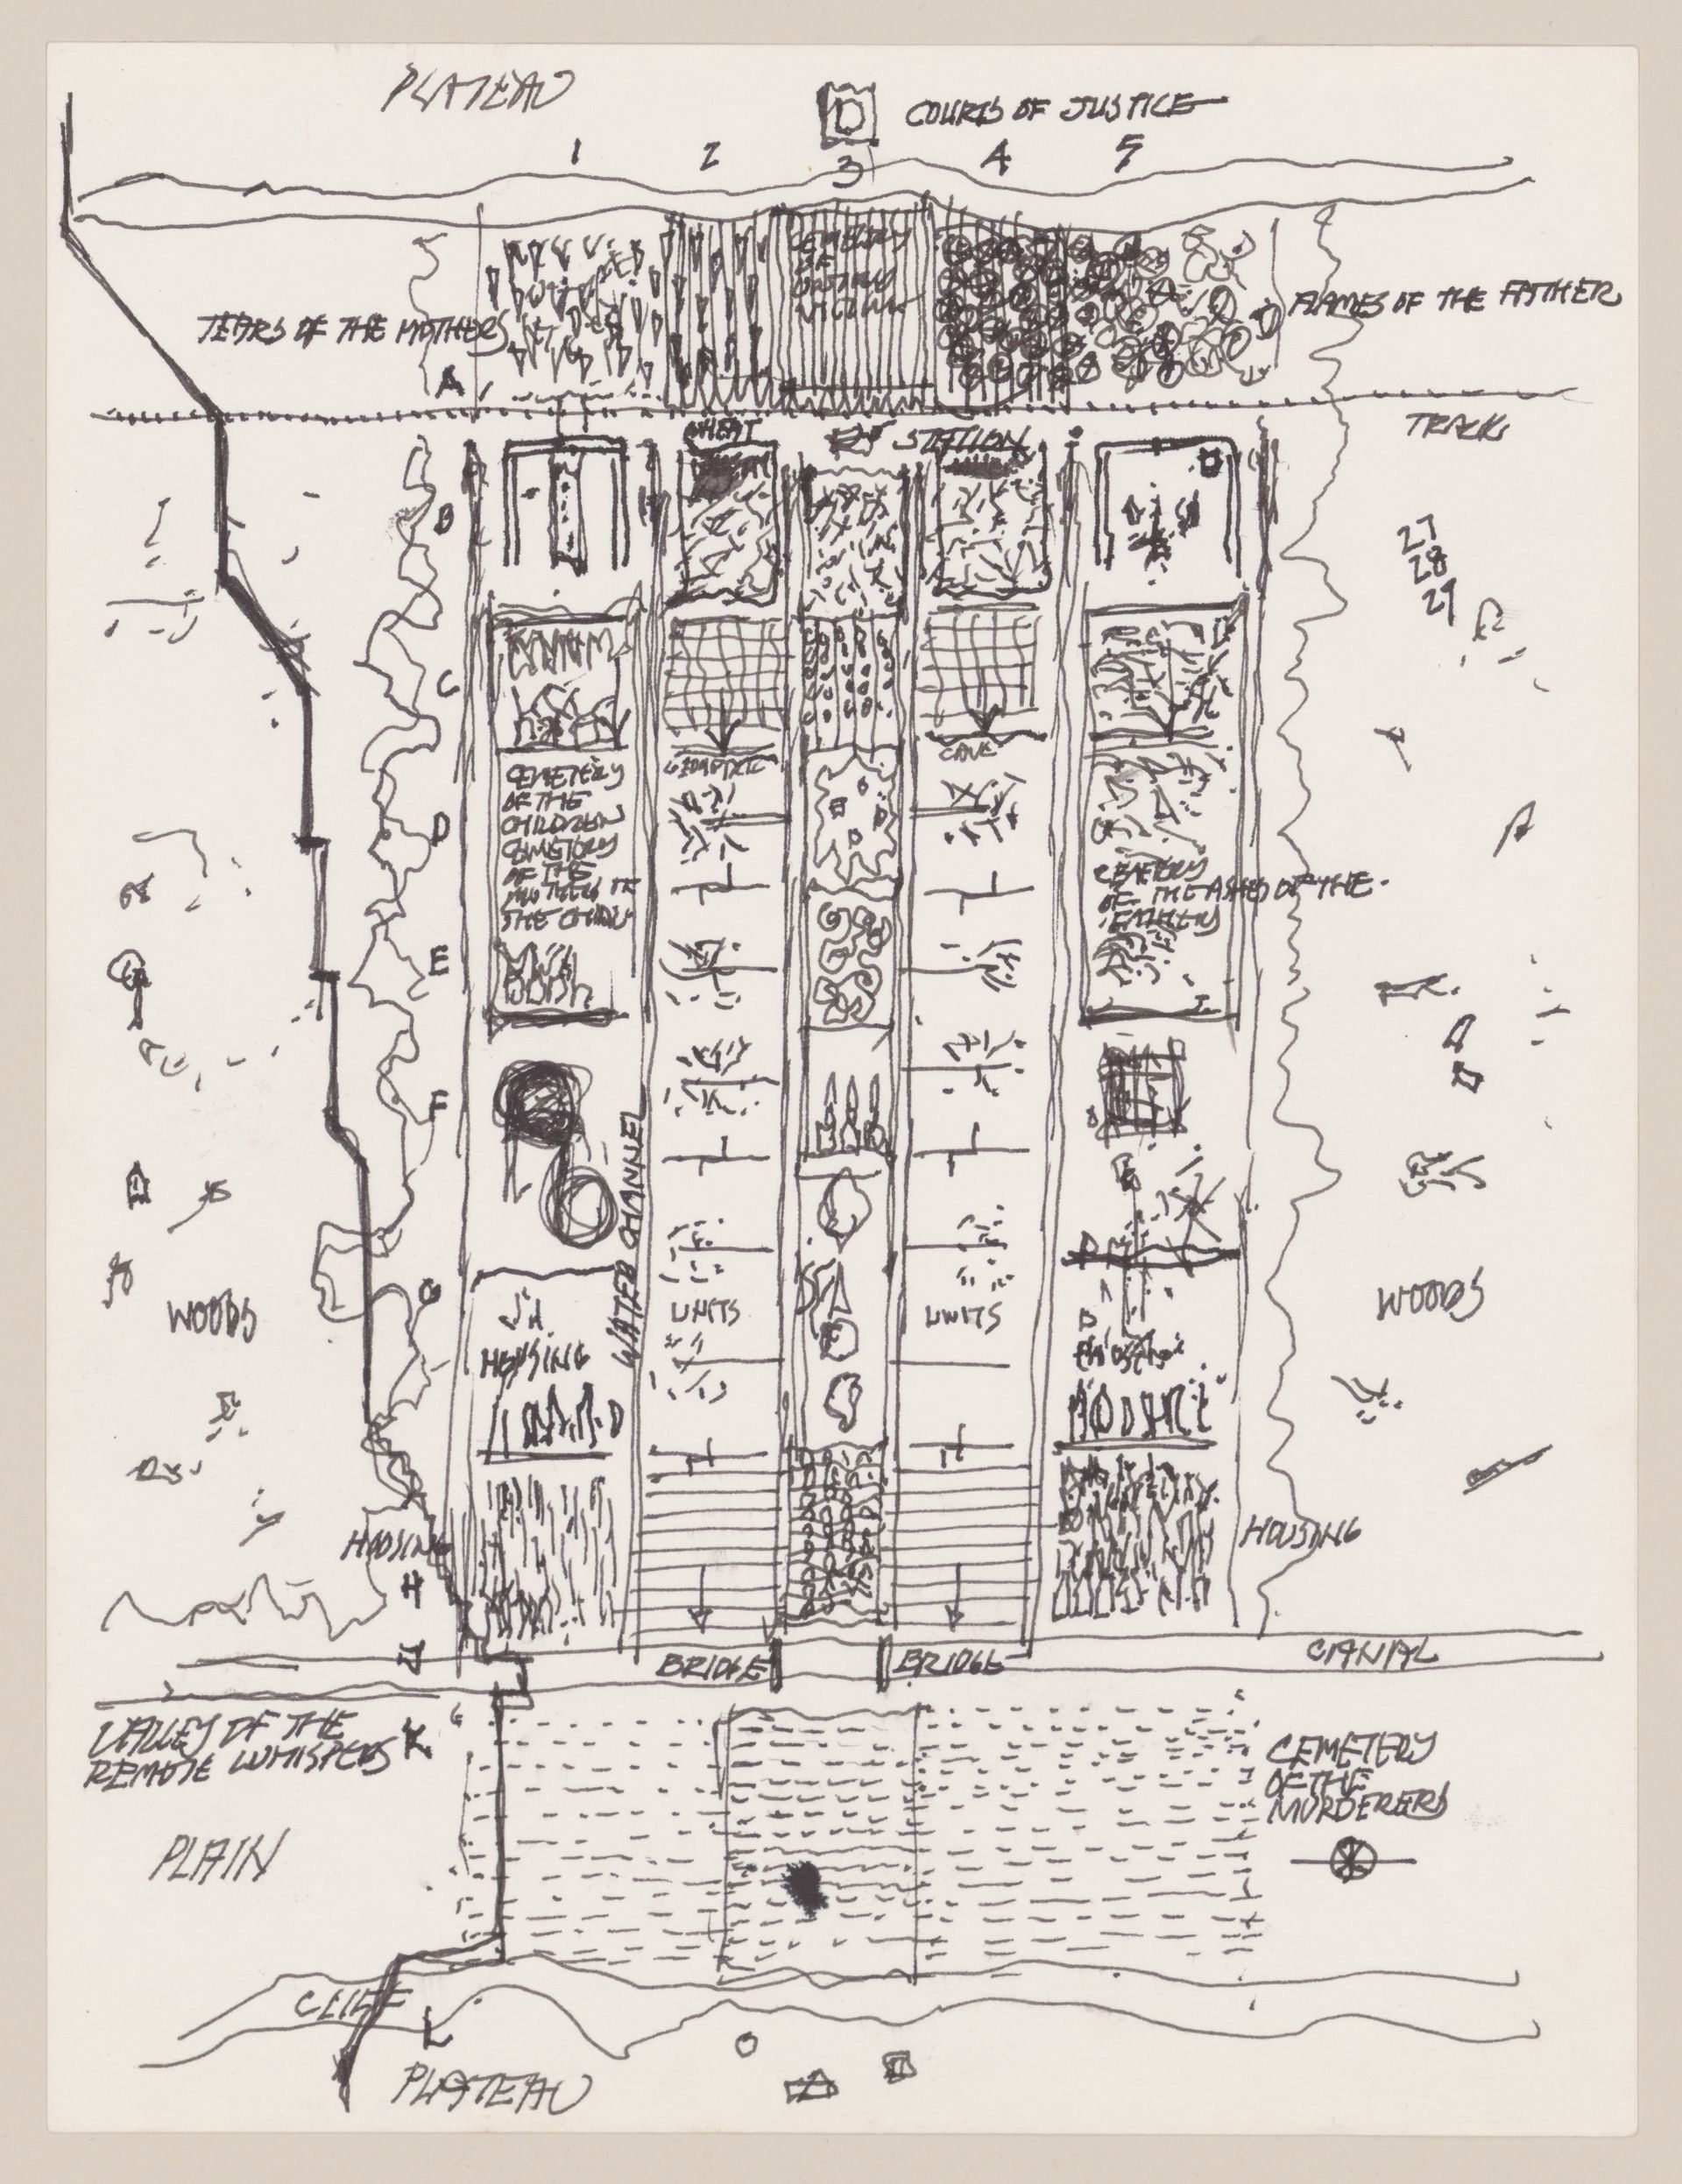 PLATEAU
COURTS OF JUSTICE
1 2 3 4 5
CEMETERY
OF
TEARS OF THE MOTHERS
FLAMES OF THE FATHER
A
TRACK
STATION
B
27
28
29
C
CAVE
CEMETERY
OF THE
CHILDREN
CEMETERY
OF THE
D
CEMETERY
OF THE ASHES OF THE
E
F
WATER CHANNEL
G
WOODS
UNITS
UNITS
WOODS
HOUSING
HOUSING
HOUSING
H
J
BRIDGE
BRIDGE
CANAL
VALLEY OF THE
REMOTE
K
CEMETERY
OF THE
MURDERERS
PLAIN
CLIFF
L
PLATEAU